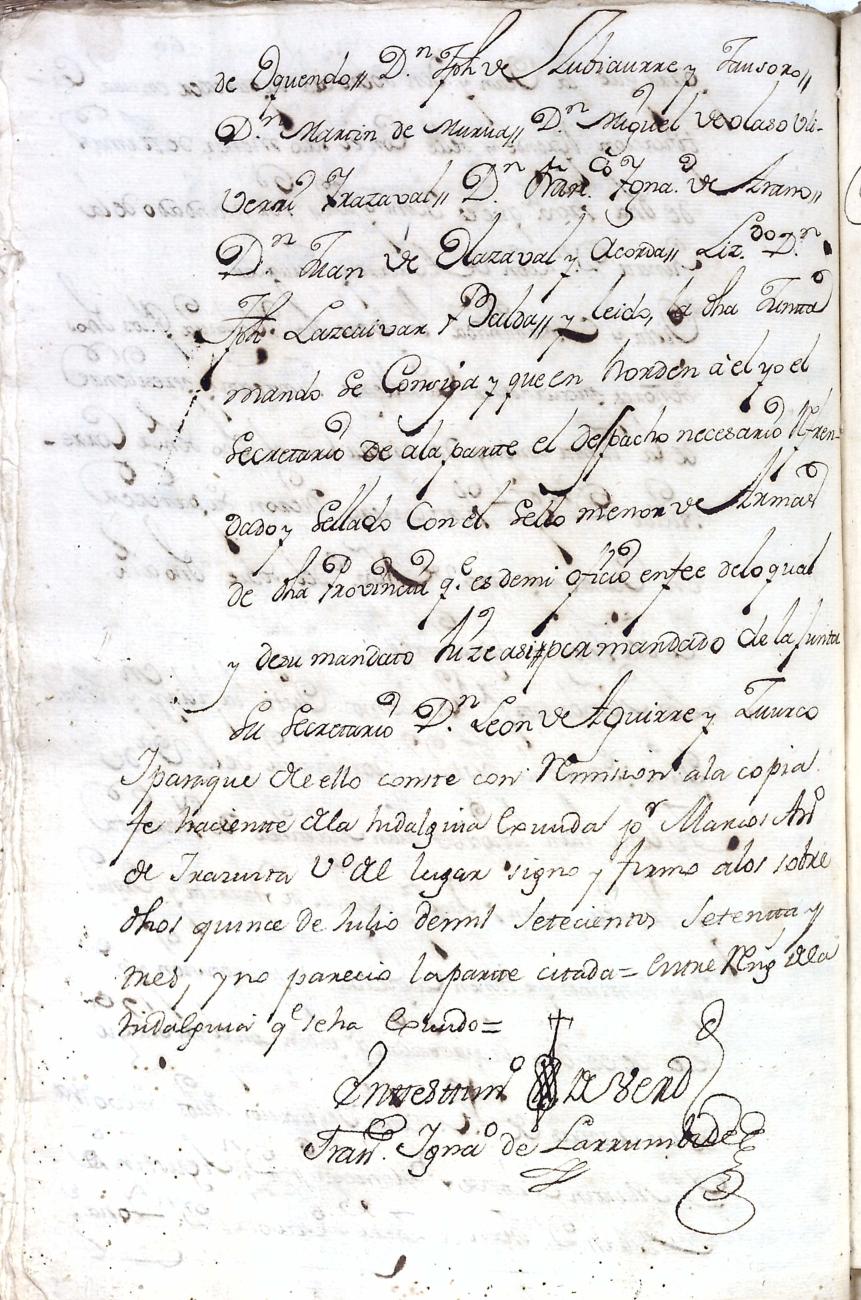 de Oquendo,, D.n Jph de Zubiaurre y Jausoro,,
D.n Martin de Murua,, D.n Miguel de olaso Uli-
verri Yrazaval,, D.n Fran.co Igna.o de
D.n Juan de Olazaval y Acorda,, Liz.do D.n
Jph Lazcaivar y Balda,, y leido, la dha Juntta
mando se Consiga y que en horden à el yo el
Secretario de ala partte el despacho necesario Refren-
dado y Sellado Con el Sello menor de Armas
de dha Provincia q.e es de mi oficio en fee delo qual
y de su mandato hize asi por mandado de la Junta
Su Secretario D.n Leon de Aguirre y
Y paraque de ello conste con Remision ala copia
fe hacientte dela hidalguia Exivida p.r Marcos Ant.o
de V.o del lugar signo y firmo alos sobre
dhos quince de Julio demil Setecientos Setentta y
tres, y no parecio lapartte citada = Entre Reng.s dela
hidalguia q.e seha Exivido =
En ttesttim.o de verd
Fran.co Igna.o de Larrumbide